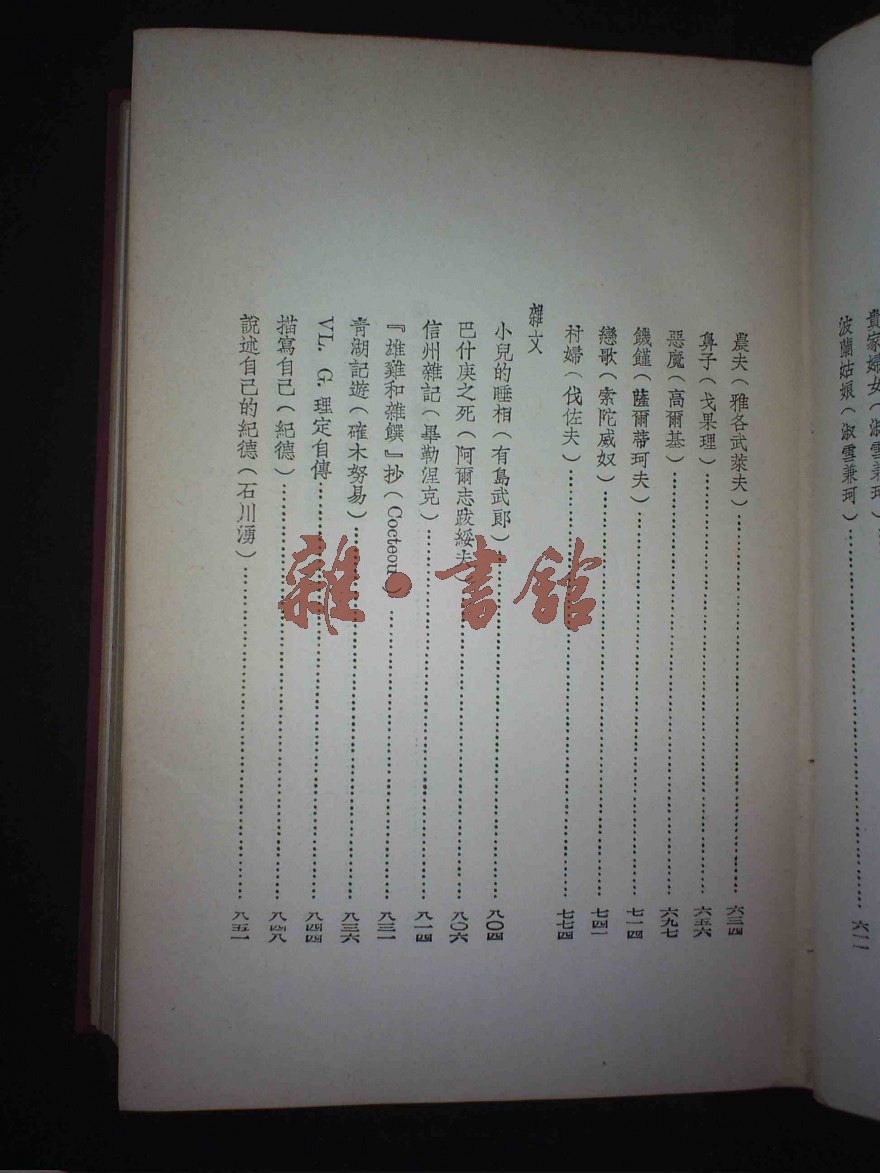 貴家婦女（淑雪兼珂）
波蘭姑娘（淑雪兼珂）……六一一
農夫（雅各武萊夫）……六三四
鼻子（戈果理）……六五六
惡魔（高爾基）……六九七
饑饉（薩爾蒂珂夫）……七一四
戀歌（索陀威奴）……七四一
村婦（伐佐夫）……七七四
雜文
小兒的睡相（有島武郎）……八〇四
巴什庚之死（阿爾志跋綏夫）……八〇六
信州雜記（畢勒涅克）……八一四
『雄雞和雜饌』抄（Cocteou）……八三一
青湖記遊（確木努易）……八三六
VL. G. 理定自傳……八四四
描寫自己（紀德）……八四八
說述自己的紀德（石川湧）……八五一
雜·書館